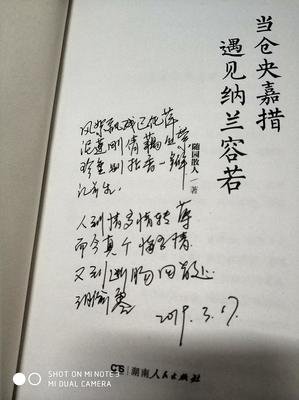 当仓央嘉措
遇见纳兰容若
随园散人 著
风絮飘残已化萍
泥莲刚倩藕丝萦
珍重别拈香一瓣
记前生
人到情多情转薄
而今真个悔多情
又到断肠回首处
泪偷零
2019.3.17
湖南人民出版社
SHOT ON MI NOTE 3
MI DUAL CAMERA